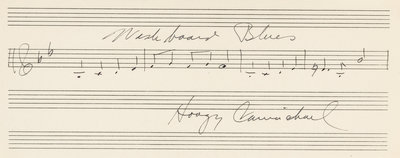 Washboard Blues
Hoagy Carmichael